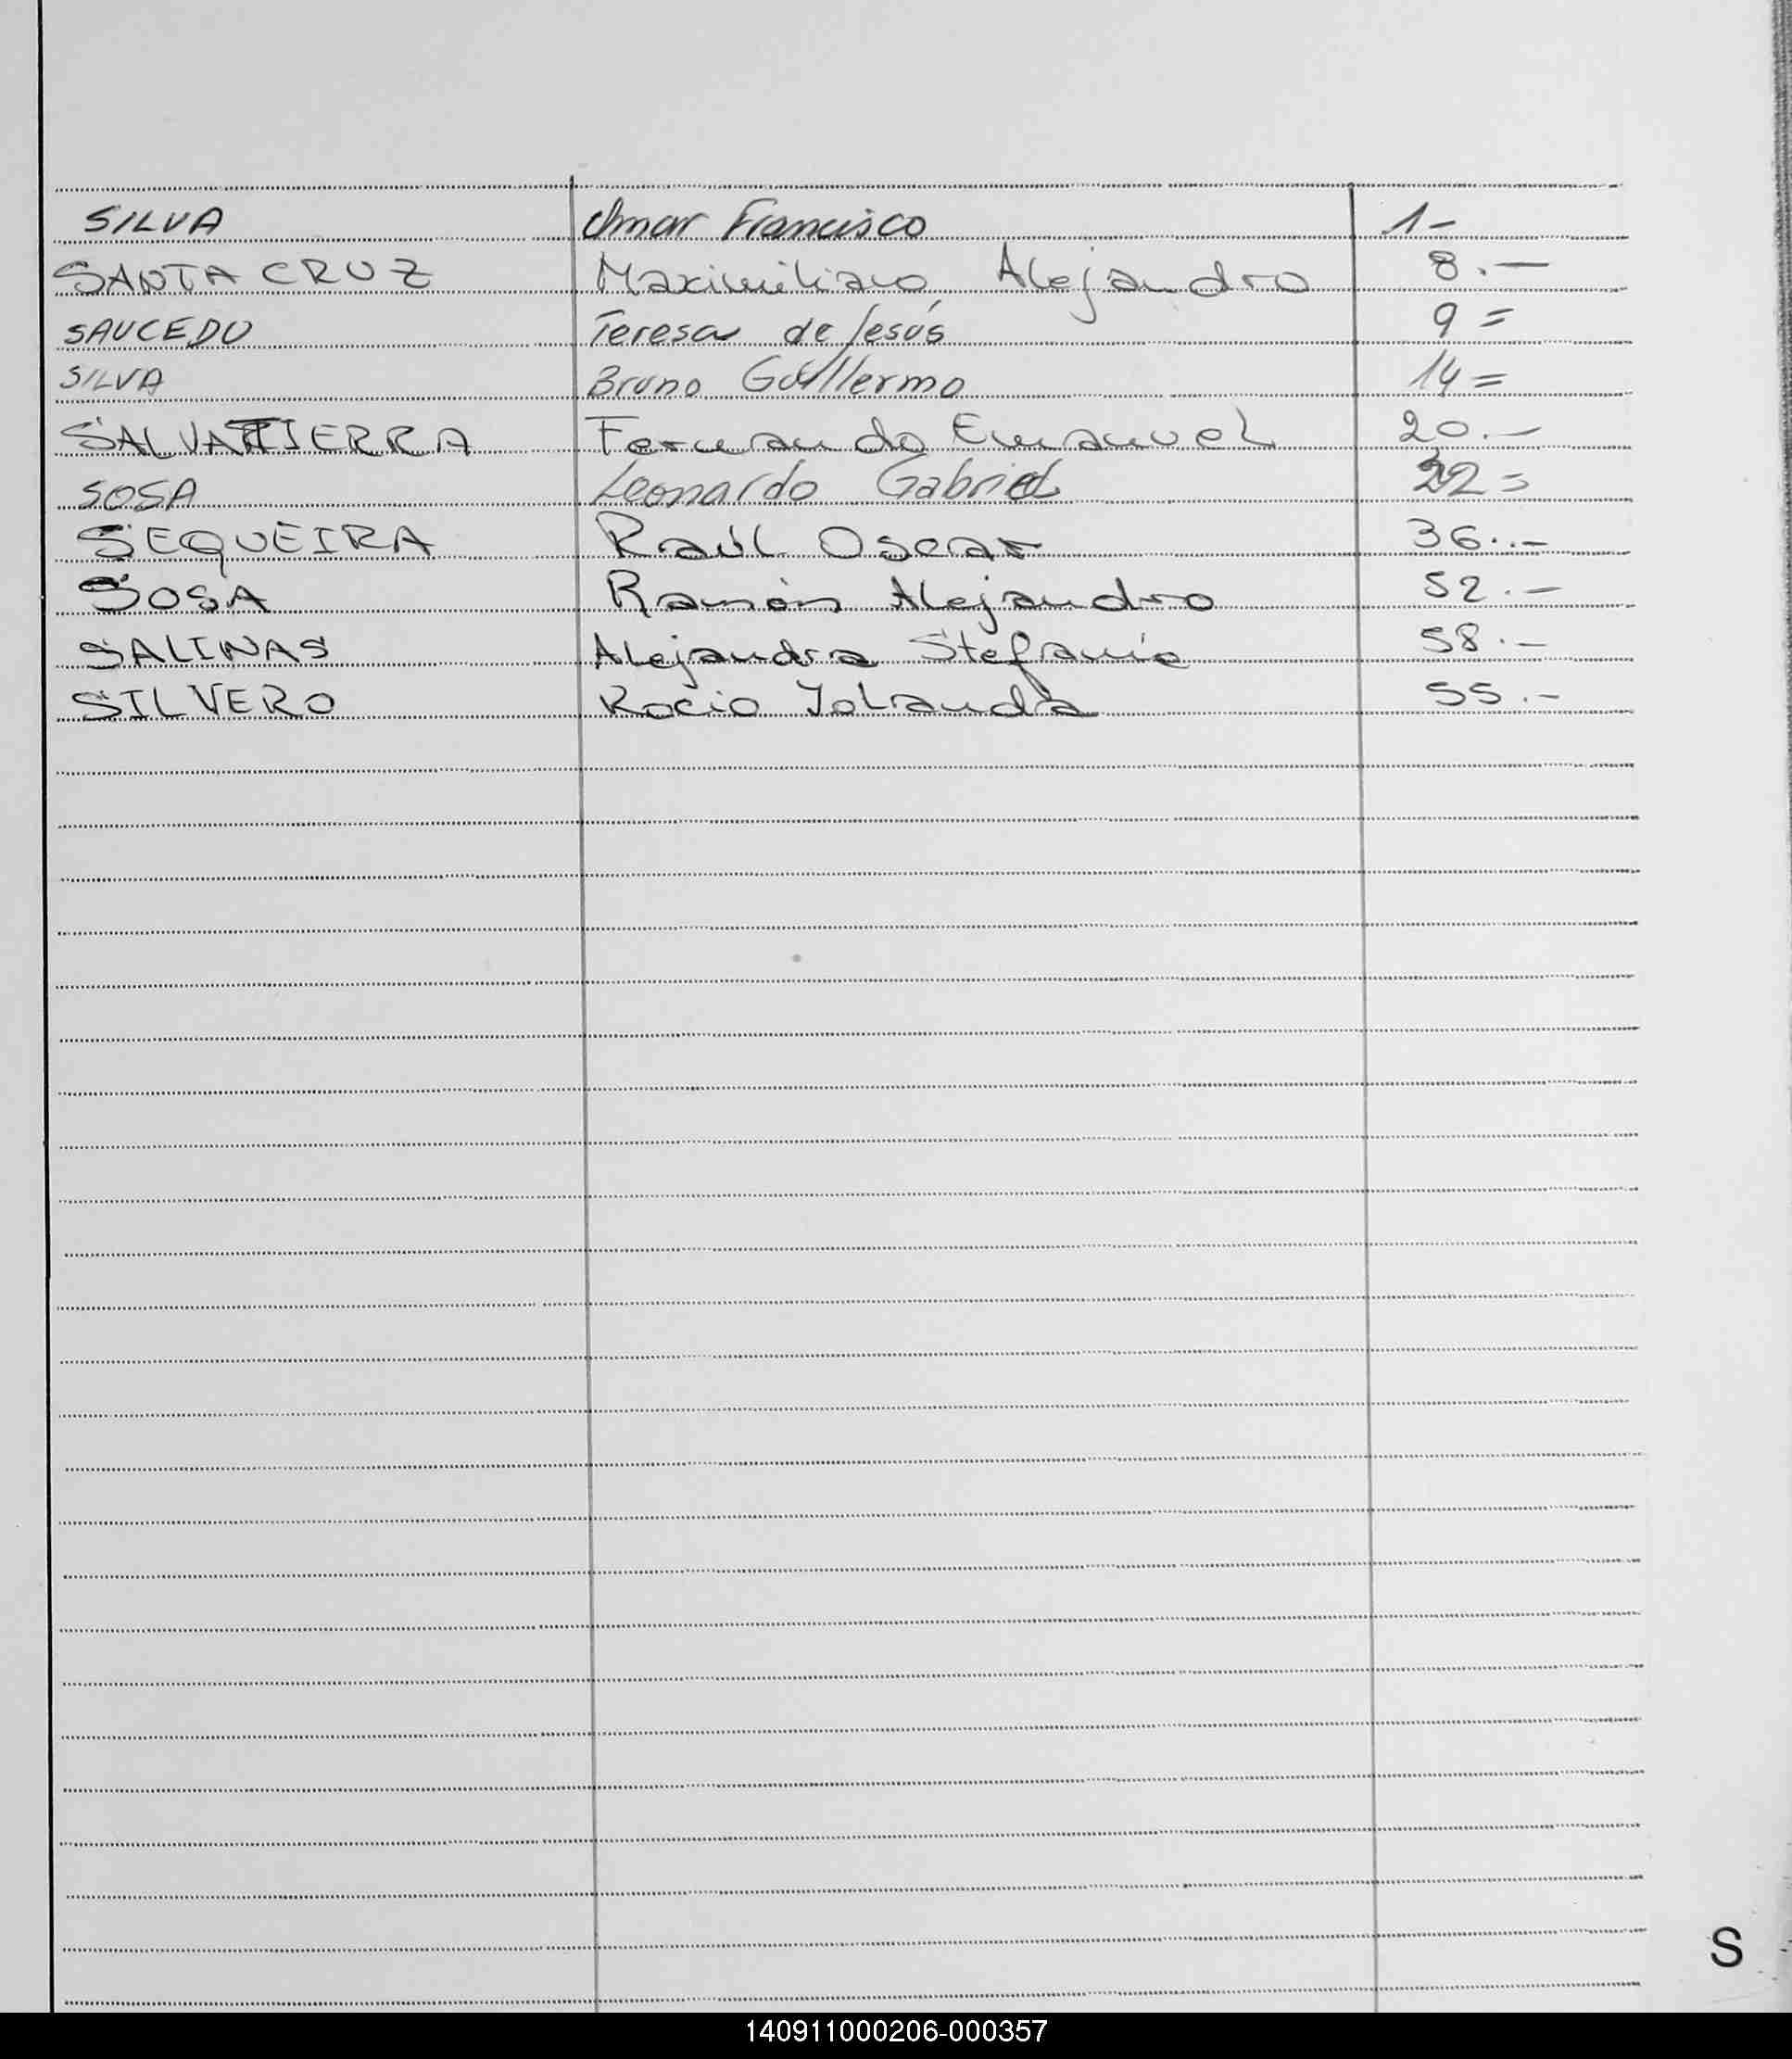 SILVA Omar Francisco 1-
SANTA CRUZ Maximiliano Alejandro 8.-
SAUCEDO Teresa de Jesús 9=
SILVA Bruno Guillermo 14=
SALVATIERRA Fernando Emanuel 20.-
SOSA Leonardo Gabriel
SEQUEIRA Raúl Oscar 36..-
SOSA Ramón Alejandro 52.-
SALINAS Alejandra Stefanía 58.-
SILVERO Rocio Yolanda 55.-
S
140911000206-000357